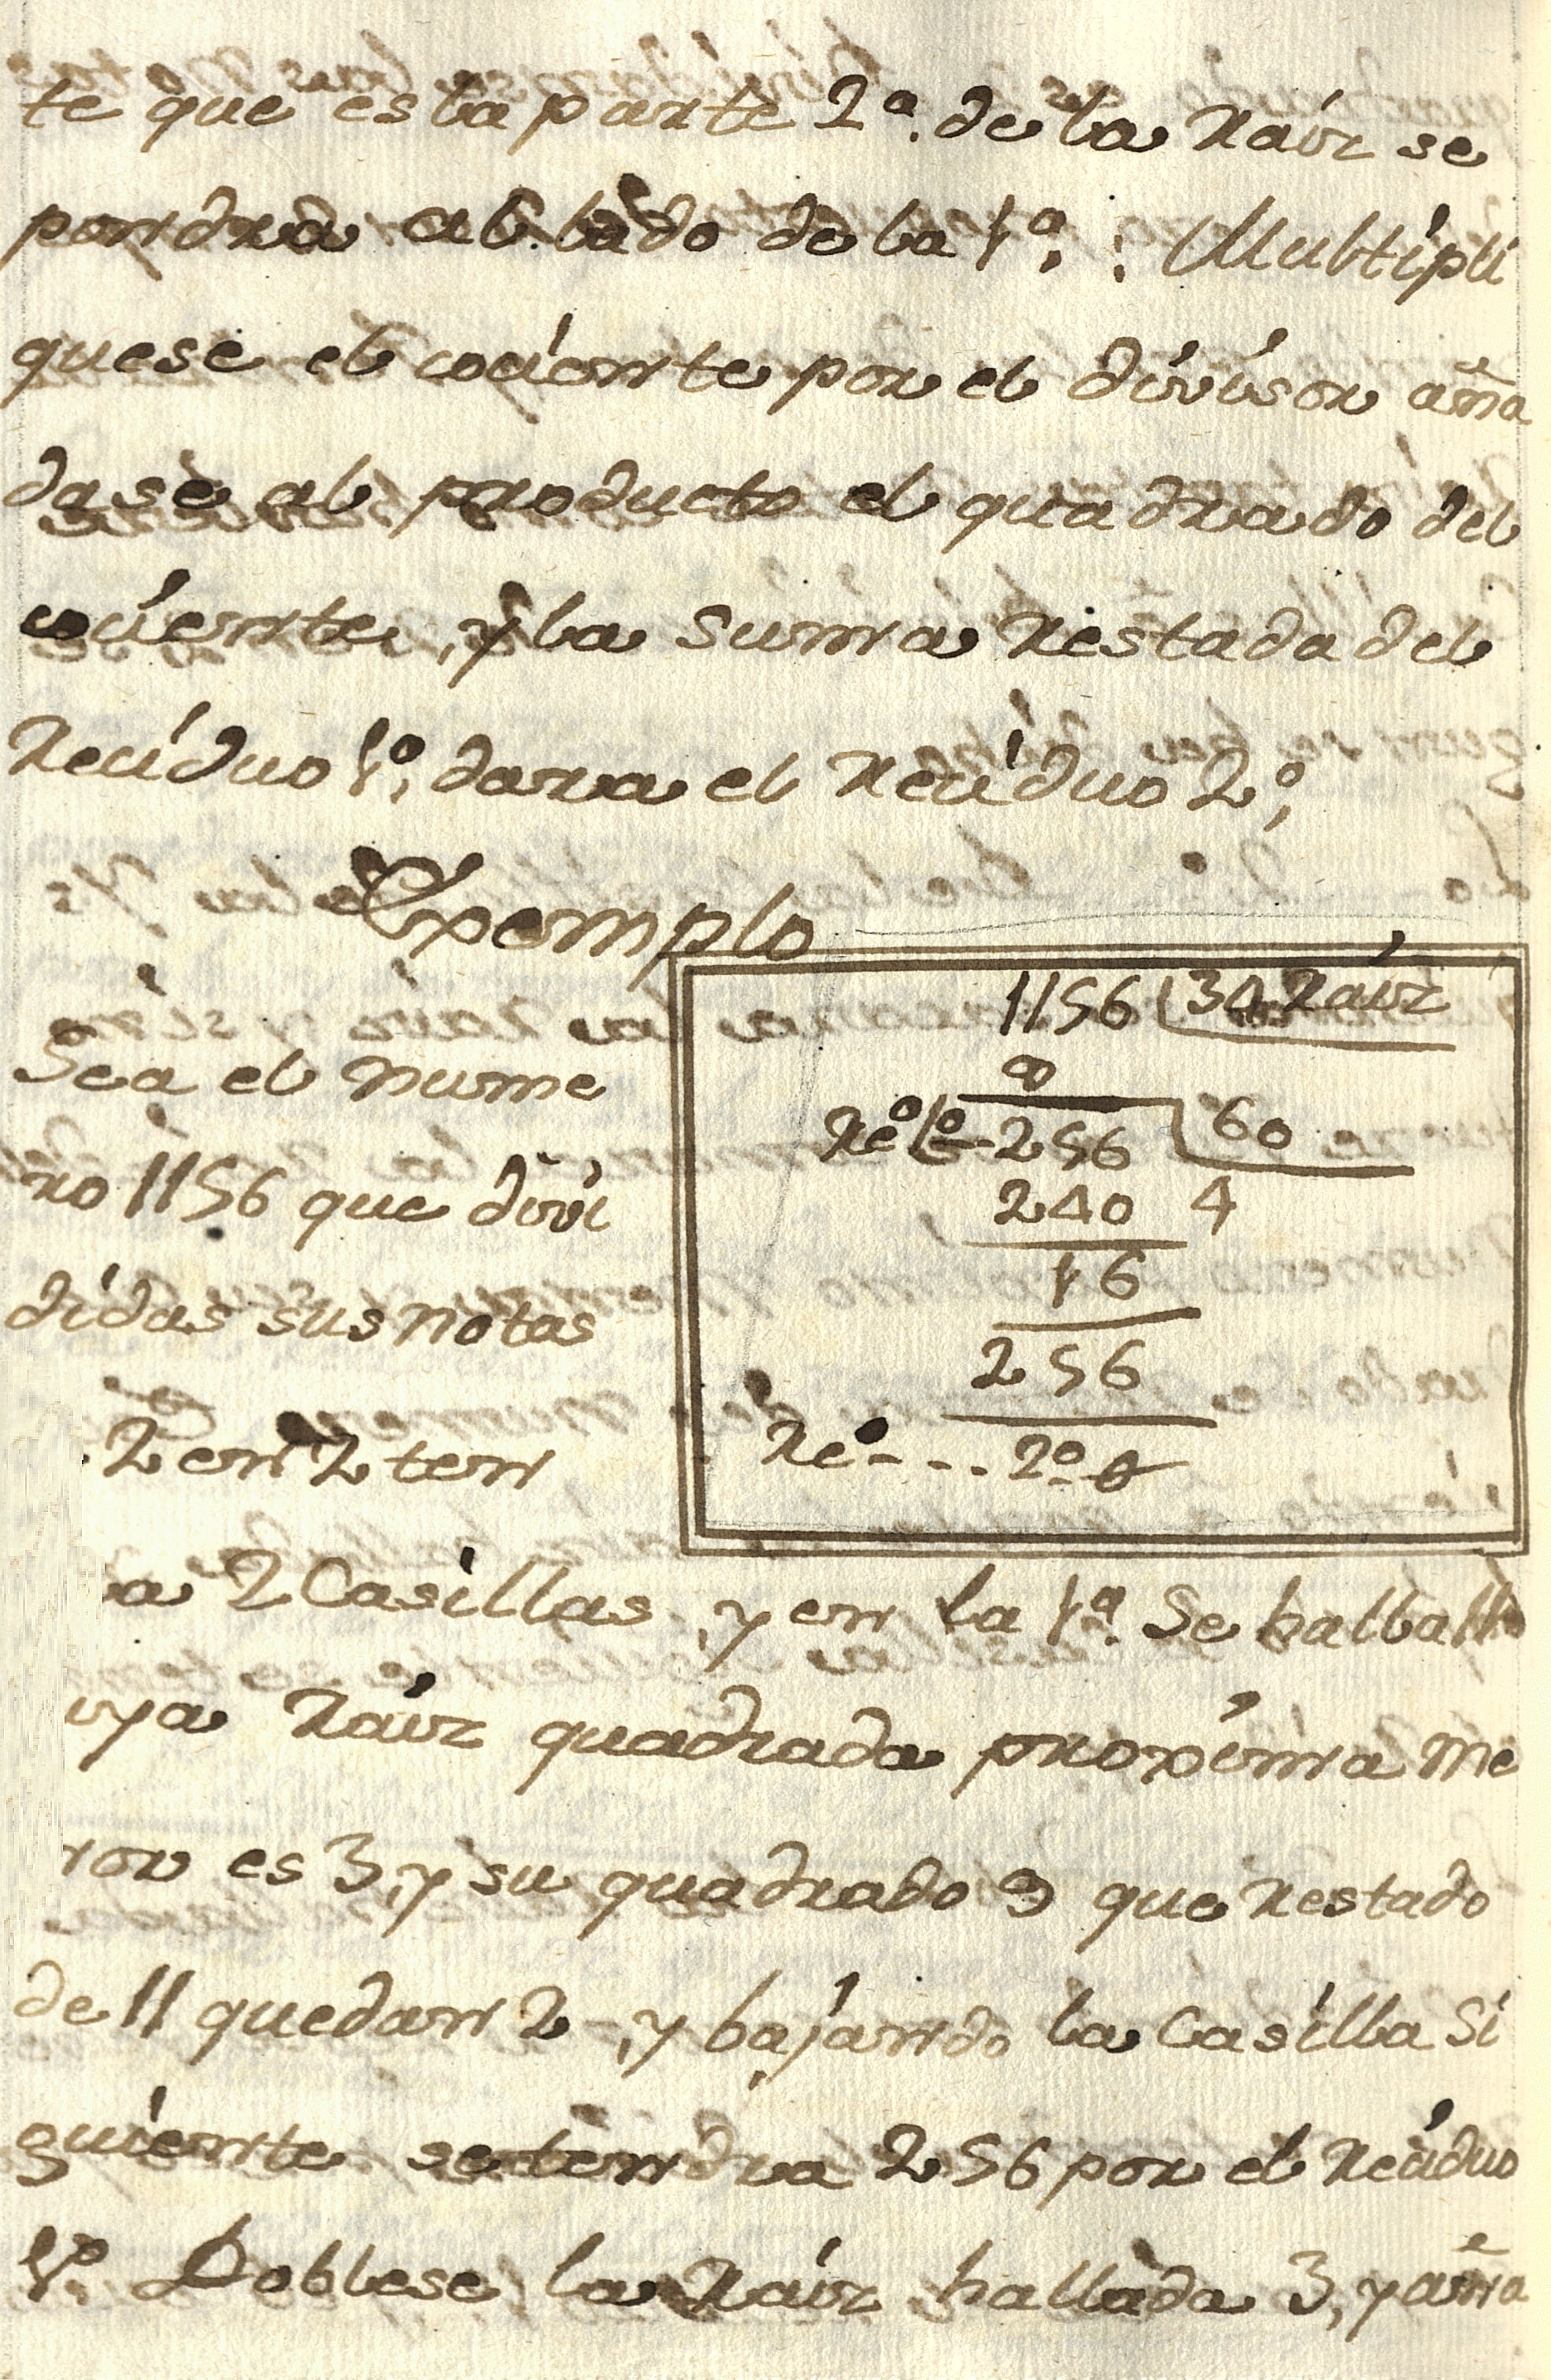 te que esta parte 2ª. de la Raiz se
pondra al lado de la 1ª, : Multipli
quese el cociente por el divisor aña
dase al producto el quadrado del
cociente, y la suma Restada del
Reciduo 1º, dara el Reciduo 2º,
Exemplo
1156 34 Raiz
9
Reº 1º - 256 60
240 4
16
256
Reº - - . 2º - 0
Sea el nume
ro 1156 que divi
didas sus notas
2 en 2 ten
a 2 Casillas, y en la 1ª. Se halla 11
uya Raiz quadrada proxima me
nor es 3, y su quadrado 9 que Restado
de 11 quedan 2, y bajando la Casilla Si
guiente se tendra 256 por el Reciduo
1º. Doblese la Raiz hallada 3, y aña